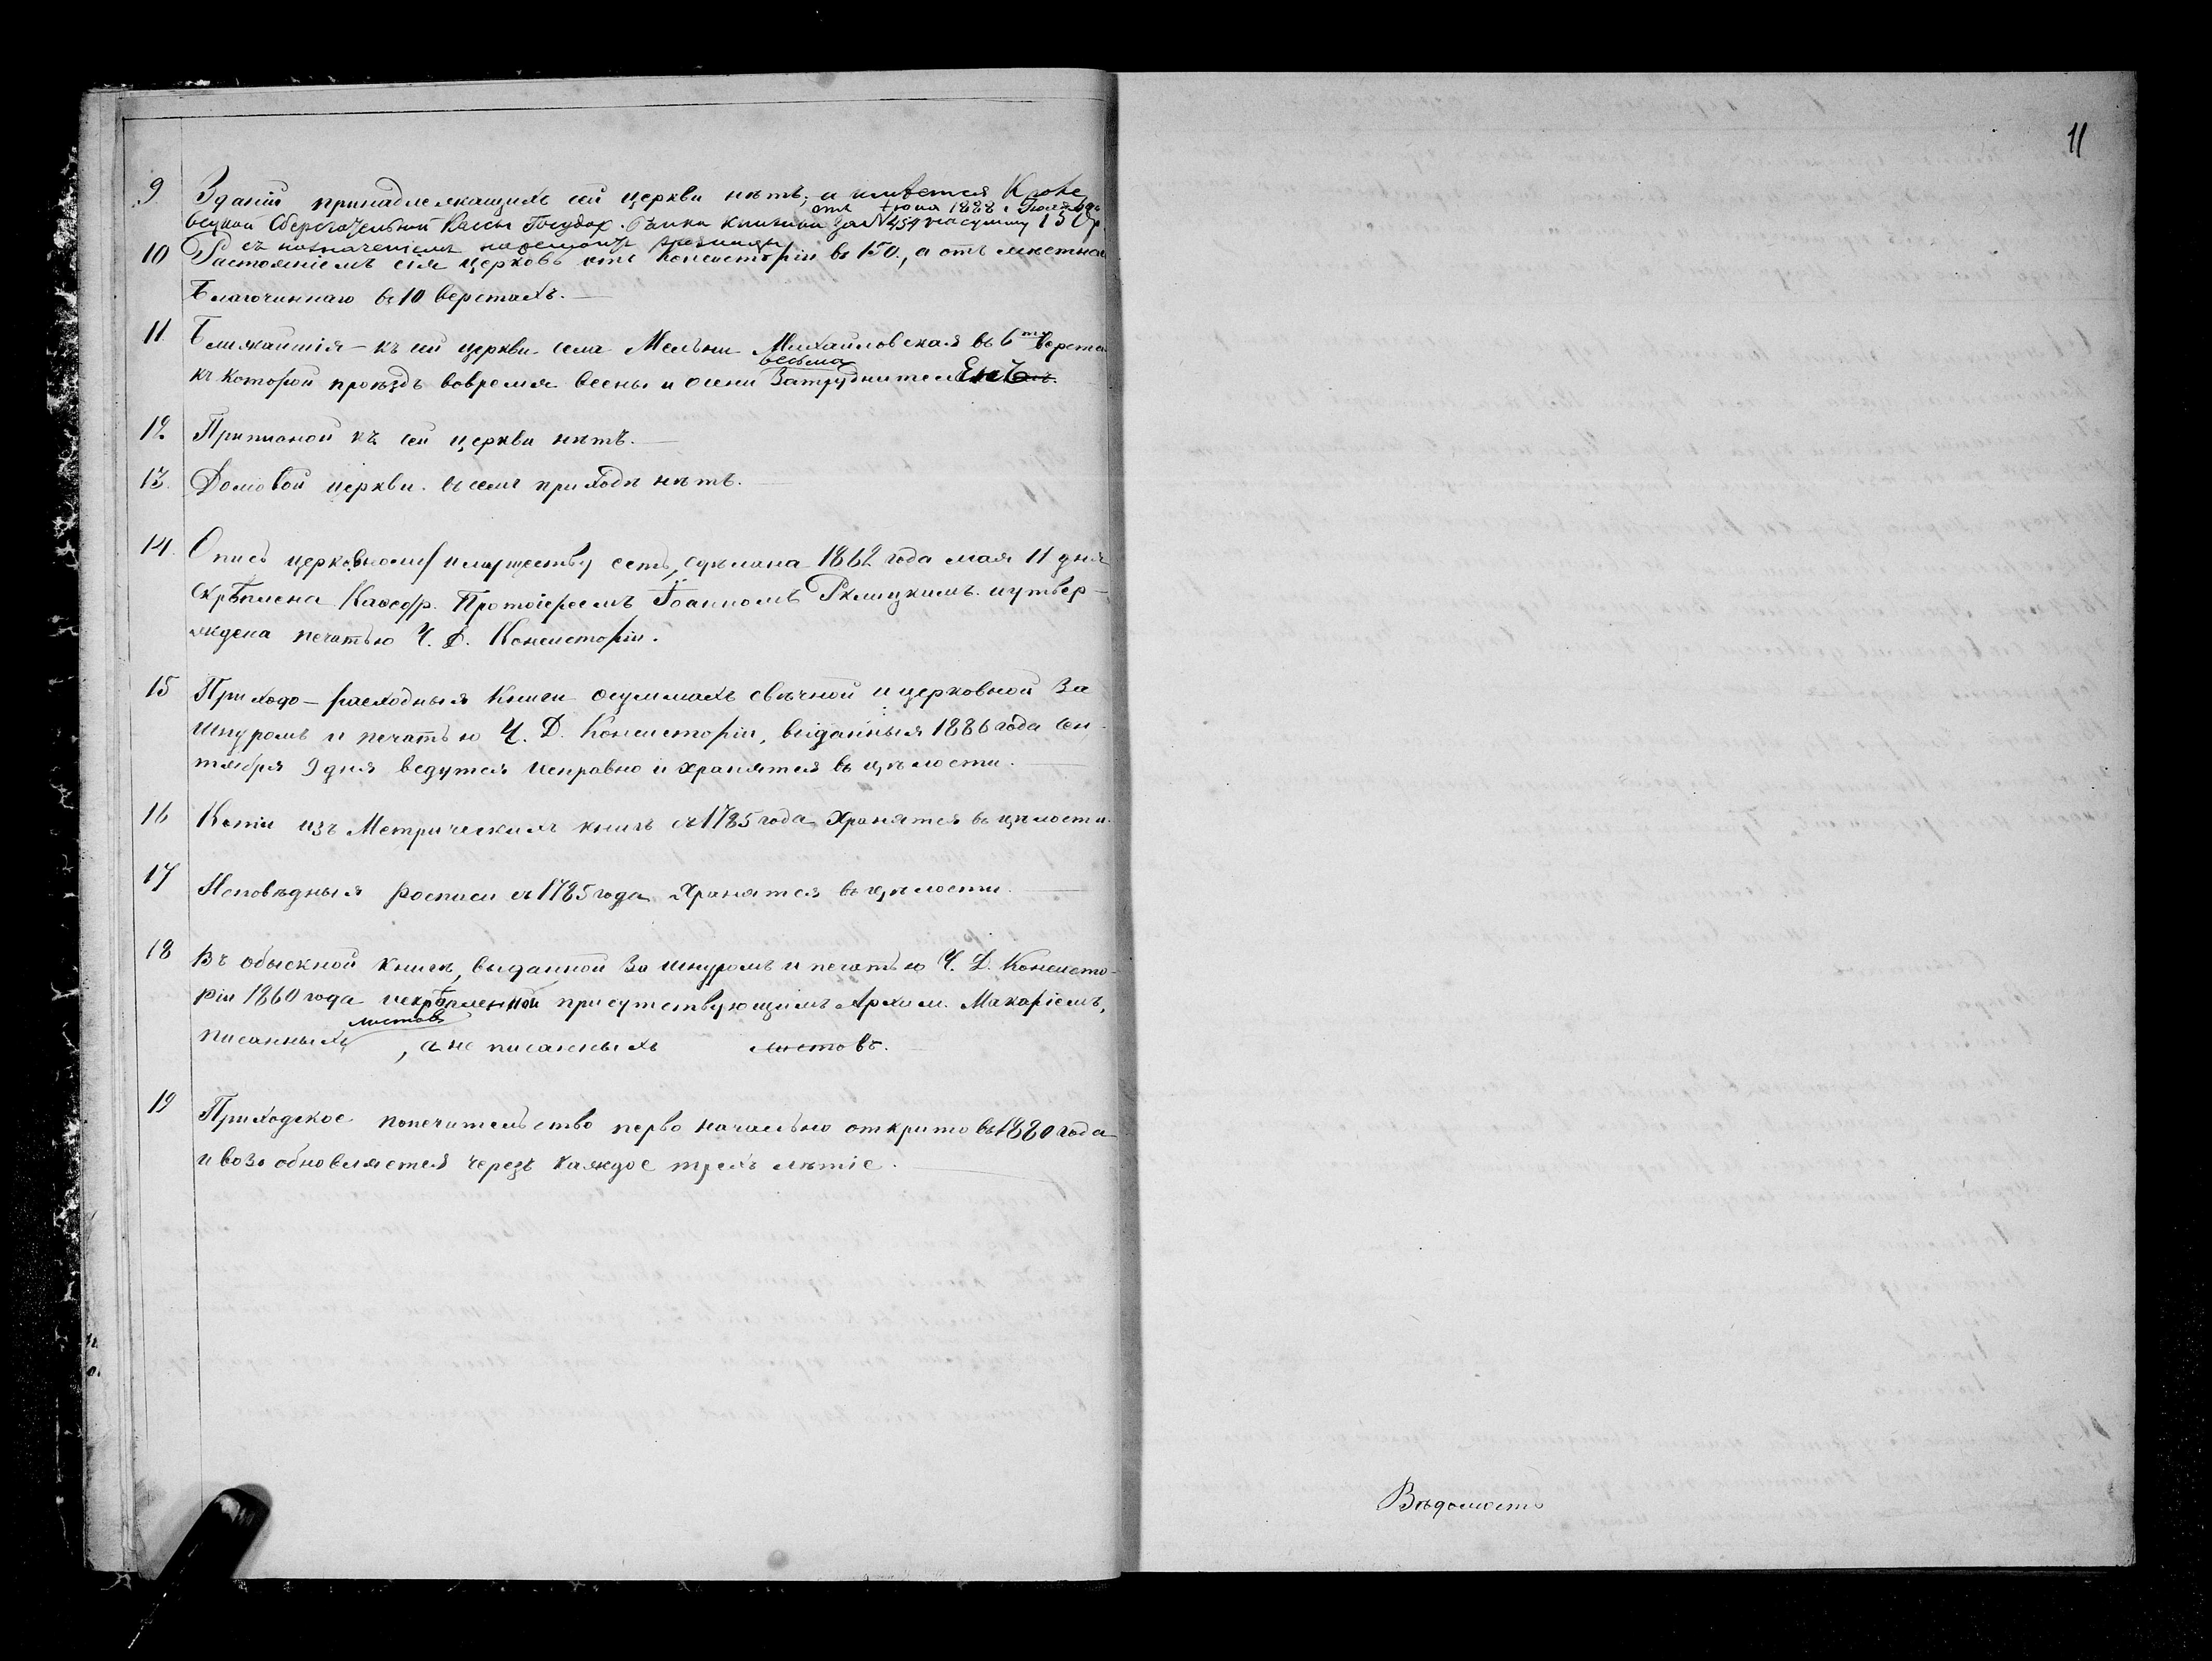 11
9 Зданій принадлежащихъ сей церкви нѣтъ, а имѣется Кроле
вецкой Сберегательной Кассы Государ. банка книжка за № 459 на сумму 150 р.
отъ Іюня 1888 г.
съ назначеніемъ на ремонтъ
10 Растояніемъ сія церковь отъ Консисторіи въ 150., а отъ мѣстнаго
Благочиннаго въ 10 верстахъ.
11 Ближайшія – къ сей церкви села Мельни Михайловская въ 6ти верста
весьма
къ которой проѣздъ вовремя весны и осени Затруднителенъ.
12 Приписной къ сей церкви нѣтъ.
13. Домовой церкви въ семъ приходѣ нѣтъ.
14. Опись церковному имуществу есть, сдѣлана 1862 года мая 11 дня
скрѣплена Каѳедр. Протоіереемъ Іоанномъ Рклицкимъ и утвер-
ждена печатью Ч. Д. Консисторіи.
15 Приходо-расходныя Книги осуммахъ свѣчной и церковной За
шнуромъ и печатью Ч. Д. Консисторіи, выданныя 1886 года Сен-
тября 9 дня ведутся исправно и хранятся въ цѣлости.
16 Копіи изъ Метрическихъ книгъ съ 1785 года хранятся въ цѣлости.
17 Исповѣдныя росписи съ 1785 года хранятся въ цѣлости.
18 Въ обыскной книгѣ, выданной За шнуромъ и печатью Ч. Д. Консисто-
ріи 1860 года искрѣпленной присутствующимъ Архим. Макаріемъ,
листовъ
писанныхъ , а не писанныхъ листовъ.
19 Приходское попечительство перво начально открыто въ 1880 года
и возо обновляется черезъ каждое трехъ лѣтіе.
Вѣдомость